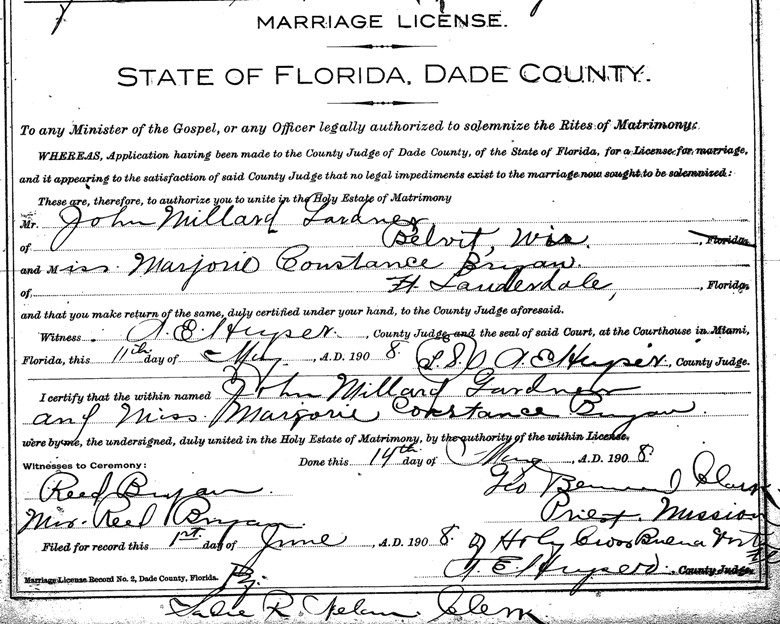 MARRIAGE LICENSE.
STATE OF FLORIDA, DADE COUNTY.
To any Minister of the Gospel, or any Officer legally authorized to solemnize the Rites of Matrimony:
WHEREAS, Application having been made to the County Judge of Dade County, of the State of Florida, for a License for marriage,
and it appearing to the satisfaction of said County Judge that no legal impediments exist to the marriage now sought to be solemnized:
These are, therefore, to authorize you to unite in the Holy Estate of Matrimony
Mr. John Millard Gardner
of Beloit, Wis. , Florida
and Miss. Marjorie Constance Bryan.
of Ft. Lauderdale, , Florida
and that you make return of the same, duly certified under your hand, to the County Judge aforesaid.
Witness A. E. Heyser , County Judge, and the seal of said Court, at the Courthouse in Miami,
Florida, this 11th day of May , A.D. 1908. (L.S.) A E Heyser. , County Judge.
I certify that the within named John Millard Gardner
and Miss. Marjorie Constance Bryan.
were by me, the undersigned, duly united in the Holy Estate of Matrimony, by the authority of the within License,
Witnesses to Ceremony: Done this 14th day of May , A.D. 1908.
Reed Bryan Geo Benn
Mrs. Reed Bryan Priest. Mission
Filed for record this 1st. day of June , A.D. 1908. of Holy Cross Buena Vista
Marriage License Record No. 2, Dade County, Florida. A. E. Heyser. , County Judge
By.
R. Clerk.